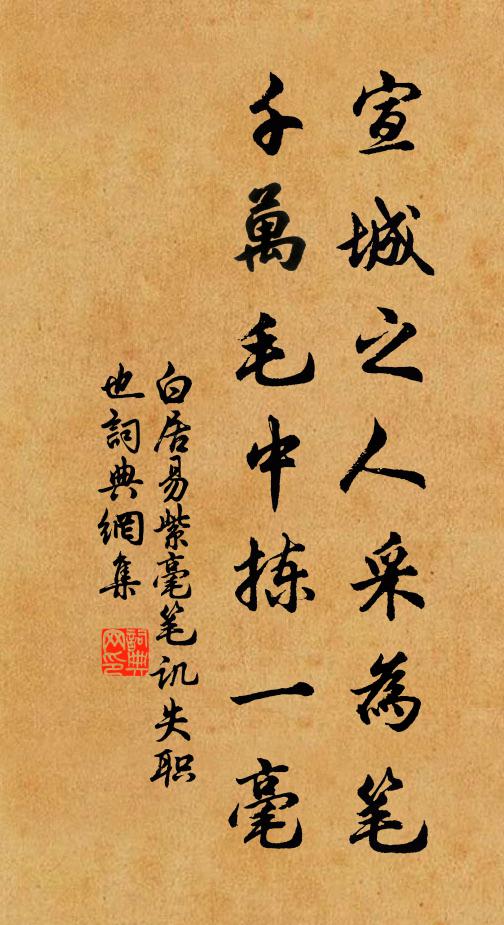 宣城之人采為笔
千萬毛中拣一毫
白居易紫毫笔讥失职
也詞典網集
詞典网印